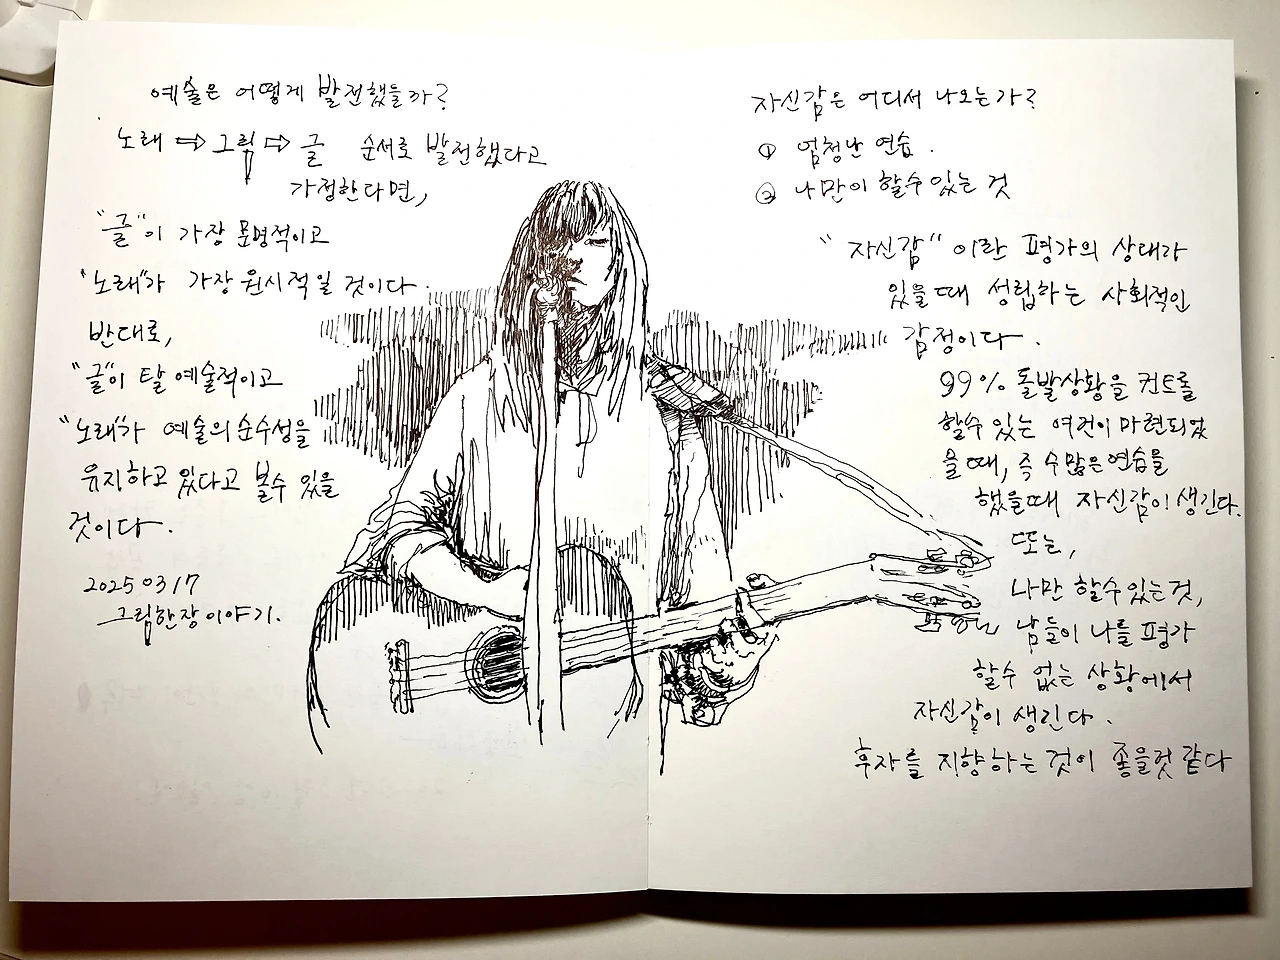 예술은 어떻게 발전했을까?
노래 ⇨ 그림 ⇨ 글 순서로 발전했다고
가정한다면,
"글"이 가장 문명적이고
"노래"가 가장 원시적일 것이다.
반대로,
"글"이 탈 예술적이고
"노래"가 예술의 순수성을
유지하고 있다고 볼수 있을
것이다.
2025 03 17
그림한장이야기.
자신감은 어디서 나오는가?
① 엄청난 연습.
② 나만이 할수 있는 것
"자신감" 이란 평가의 상대가
있을때 성립하는 사회적인
감정이다.
99% 돌발상황을 컨트롤
할수 있는 여건이 마련되었
을때, 즉 수많은 연습을
했을때 자신감이 생긴다.
또는,
나만 할수 있는 것,
남들이 나를 평가
할수 없는 상황에서
자신감이 생긴다.
후자를 지향하는 것이 좋을것 같다